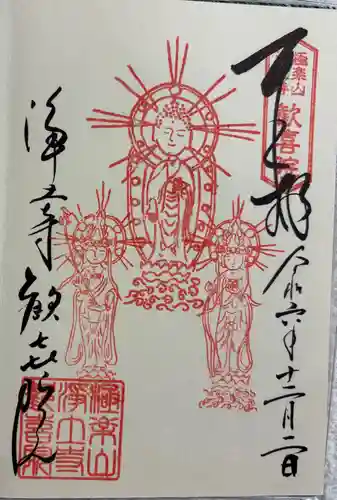 奉拝
令和六年十二月二日
極楽山
歓喜院
浄土寺
歓喜院
極楽山
浄土寺
歓喜院